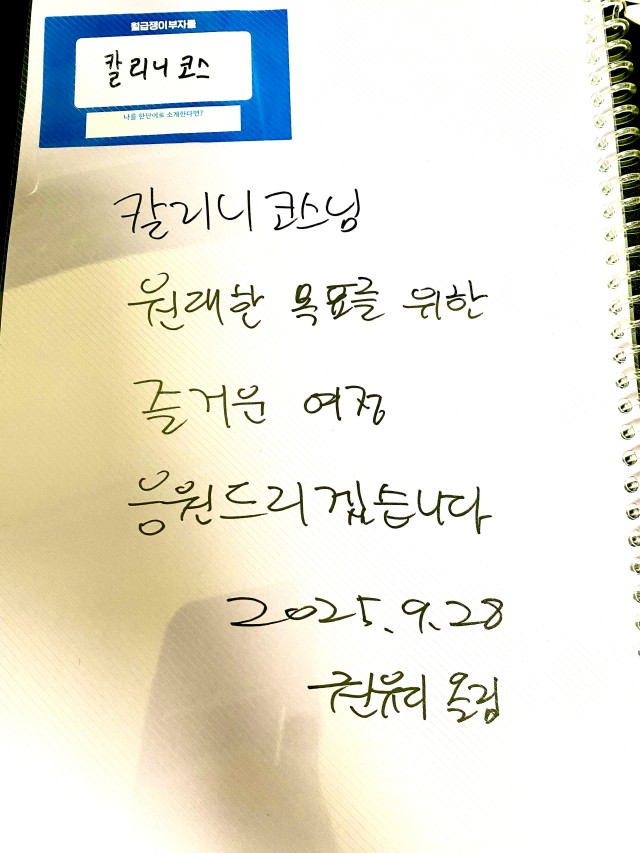 월급쟁이부자들
칼리니코스
나를 한단어로 소개한다면?
칼리니코스님
원대한 목표를 위한
즐거운 여정
응원드리겠습니다
2025.9.28
권유디 올림